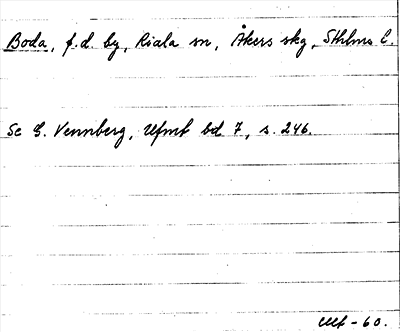 Boda, f.d. by, Riala sn, Åkers skg, Sthlms l.
Se E. Vennberg, Ufmt bd 7, s. 246.
-60.